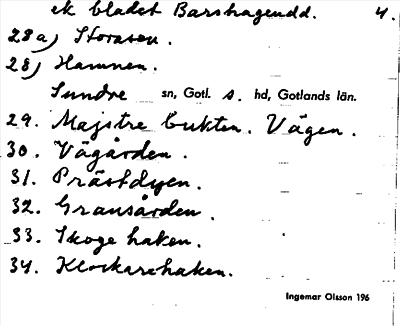 ek bladet Barshagendd. 4.
28a) Storasen.
28) Hamnen.
Sundre sn, Gotl. s. hd, Gotlands län.
29. Majstre bukten. Vägen.
30. Vägården.
31. Prästdyen.
32. Gransården.
33. Skoge haken.
34. Klockarehaken.
Ingemar Olsson 196